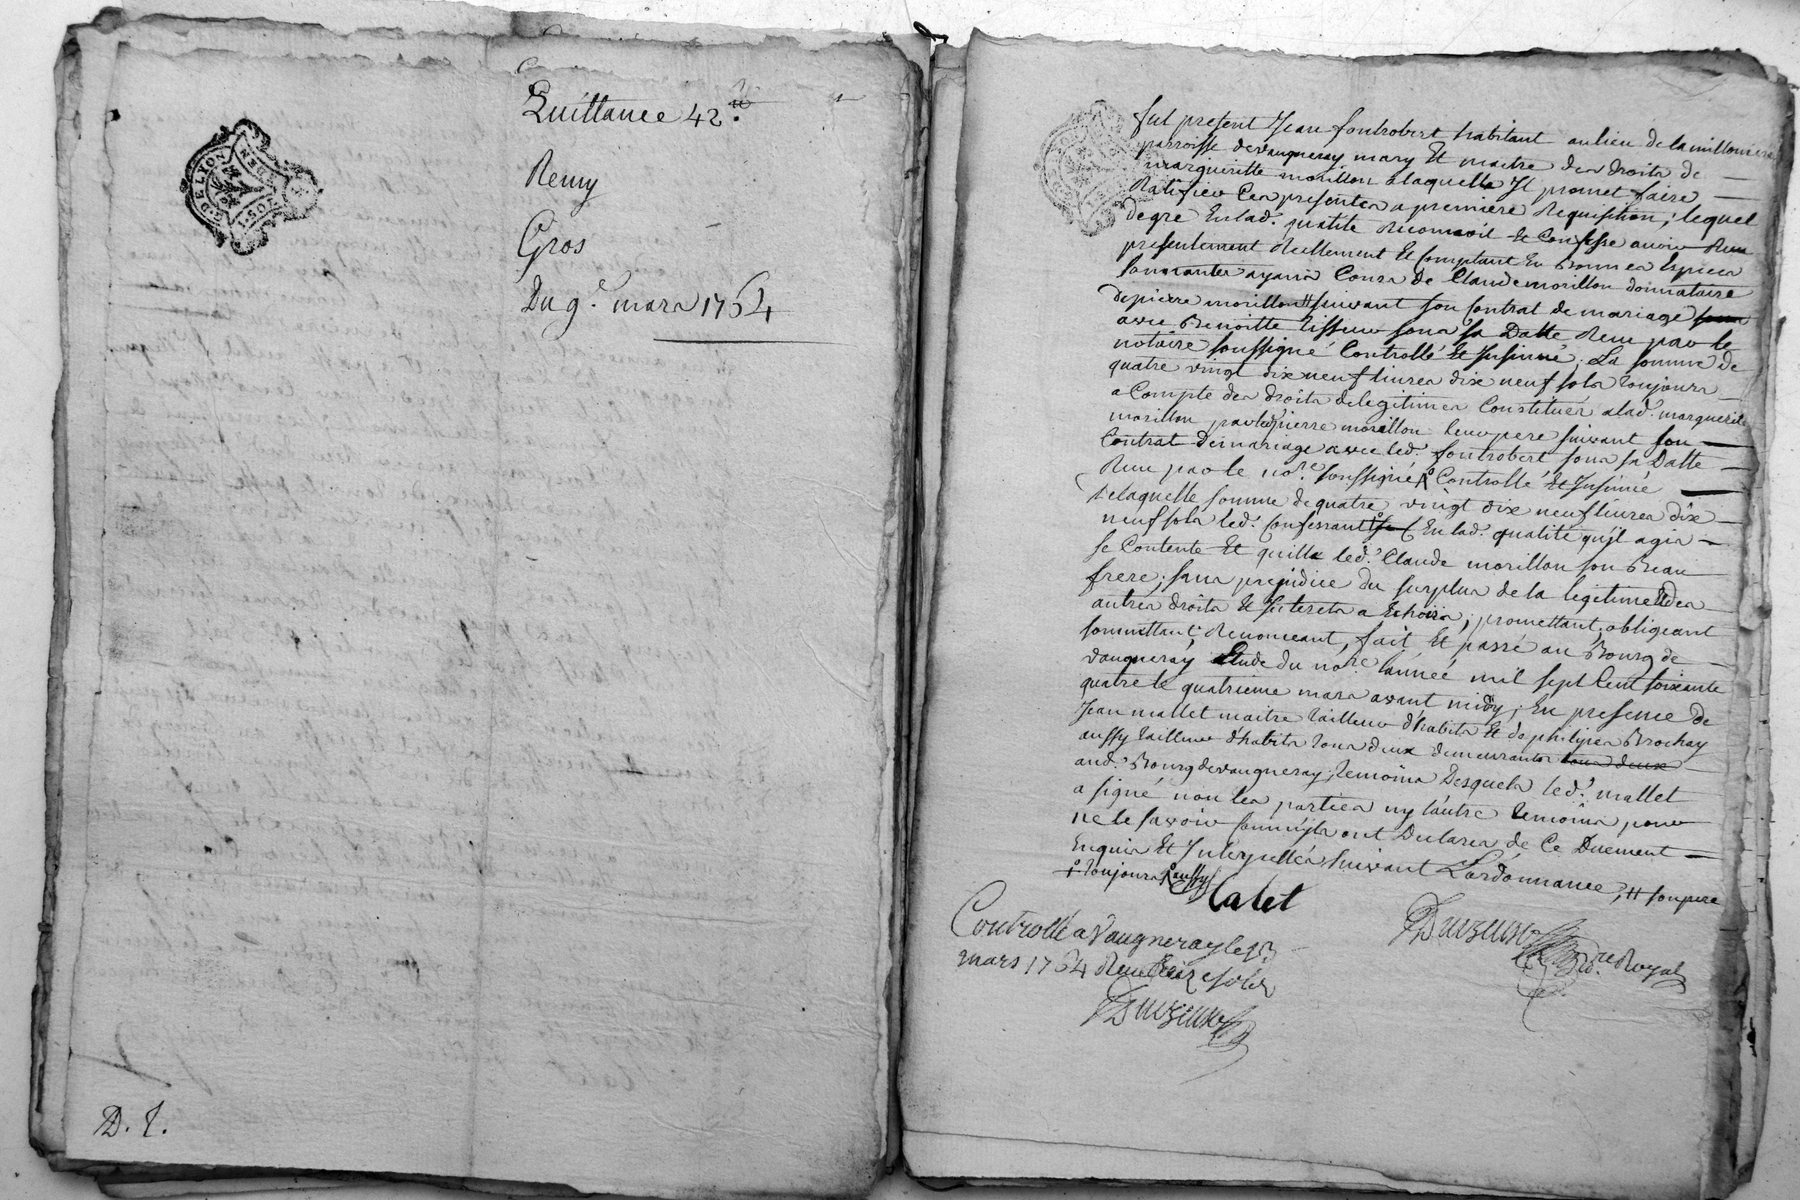 Quittance 42.ᵗᵗ
Remy
Gros
Du 9.ᵉ mars 1764
G. DE LYON
D. J.
fut present Jean fontrobert habitant au lieu de la milloniere
parroisse de vaugneray mary Et maitre des droits de
margueritte morillon a laquelle Il promet faire
Ratifier Ces presentes a premiere Requisition ; lequel
de gre En lad. qualité Reconnoit Et Confesse avoir Reçu
presentement Reellement Et Comptant En Bonnes Espèces
sonnantes ayans Cours de Claude morillon donnataire
de pierre morillon # suivant son Contrat de mariage
avec Benoitte tisseur sous sa Datte Reçu par le
notaire soussigné Controllé Et Insinué ; La somme de
quatre vingt dix neuf livres dix neuf sols toujours
a Compte des droits de legitimes Constitués a lad. marguerite
morillon par led. pierre morillon leur pere suivant son
Contrat de mariage avec led. fontrobert sous sa Datte
Reçu par le no.re soussigné Controllé Et Insinué
De laquelle somme de quatre vingt dix neuf livres dix
neuf sols led. Confessant En lad. qualité qu'jl agis
se Contente Et quitte led. Claude morillon son Beau
frere ; sans prejudice du surplus de la legitime Et des
autres droits Et Interets a Echoirs ; promettant, obligeant
soumettant, Renonceant, fait Et passé au Bourg de
vaugneray Etude du no.re L'année mil sept Cent soixante
quatre le quatrieme mars avant midy ; En presence de
Jean mallet maitre tailleur d'habits Et de philipes Brochay
aussy tailleur d'habits tous deux demeurants tous deux
aud. Bourg de vaugneray, temoins Desquels led. mallet
a signé non les parties ny l'autre temoins pour
ne le savoir somméls ont Declarés de Ce Duement
Enquis Et Interpellés suivant L'ordonnance, # son pere
toujours aussy
Malet
no.re Royal
Controllé a Vaugneray le 15
mars 1764 Reçu treize sols